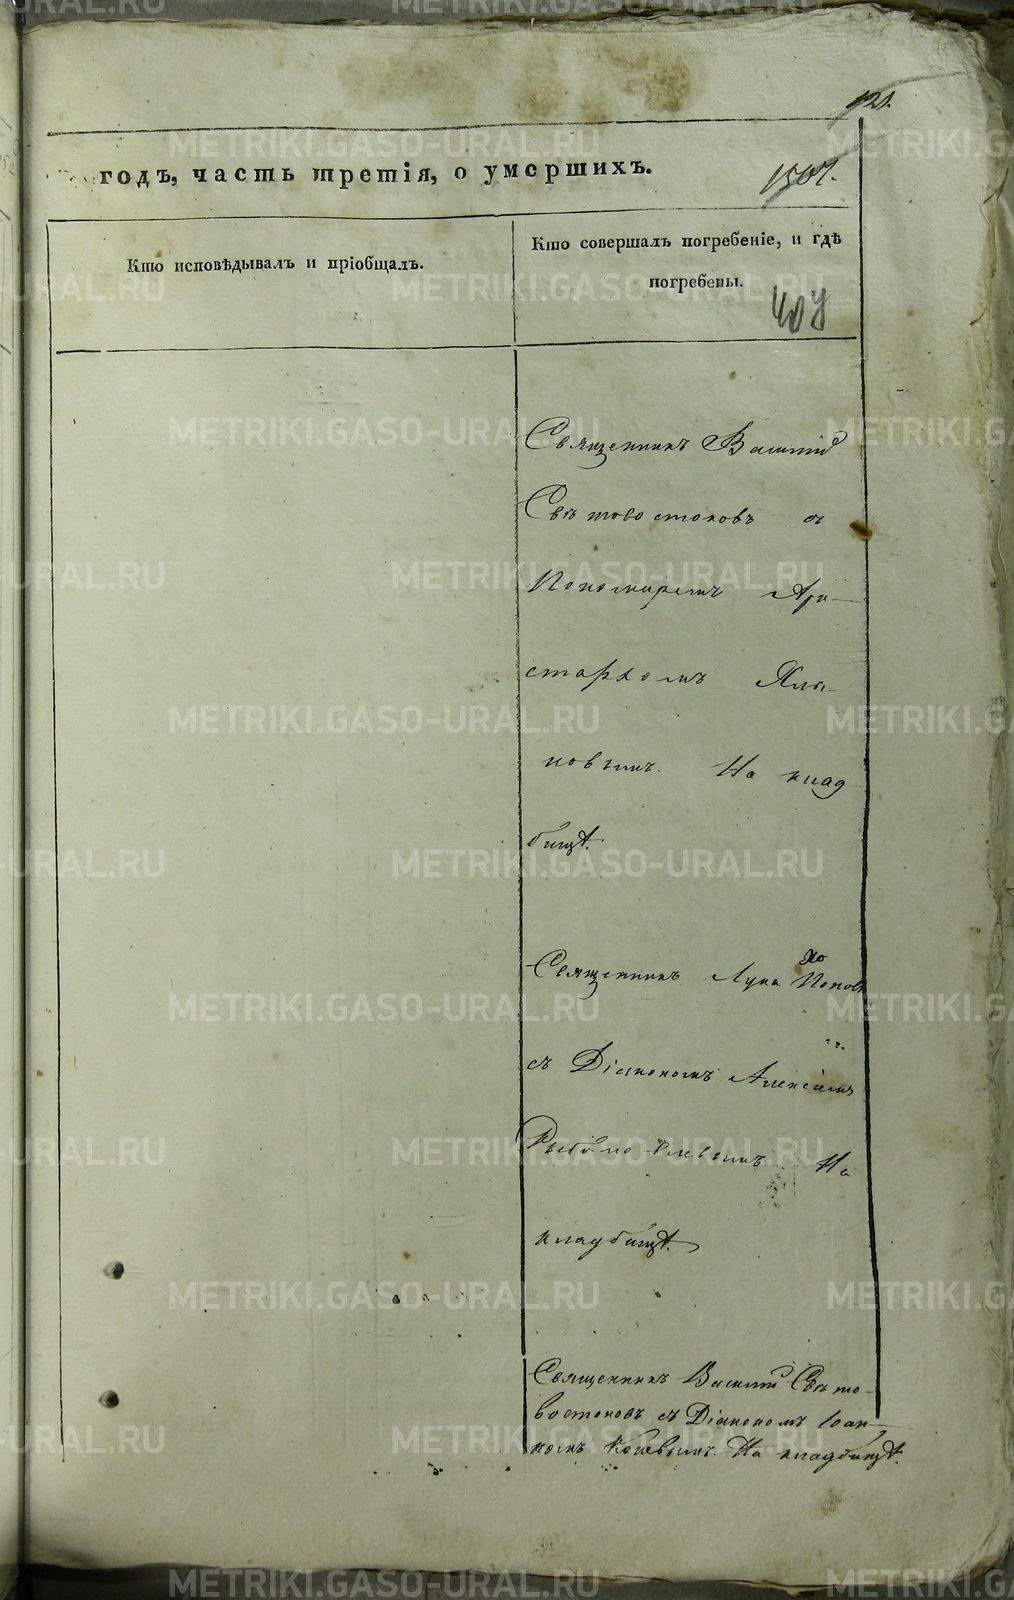 121.
годъ, часть третія, о умершихъ.
1507.
Кто исповѣдывалъ и пріобщалъ.
Кто совершалъ погребеніе, и гдѣ
погребены.
Священникъ Василій
Свѣтовостоковъ съ
Пономаремъ Ари-
стархомъ
новымъ. На клад
бищѣ.
Священникъ Лука Поповъ
съ Діакономъ Алексіемъ
На
кладбищѣ.
Священникъ Василій Свѣто-
востоковъ съ Діакономъ Іоан-
номъ На кладбищѣ.
METRIKI.GASO-URAL.RU